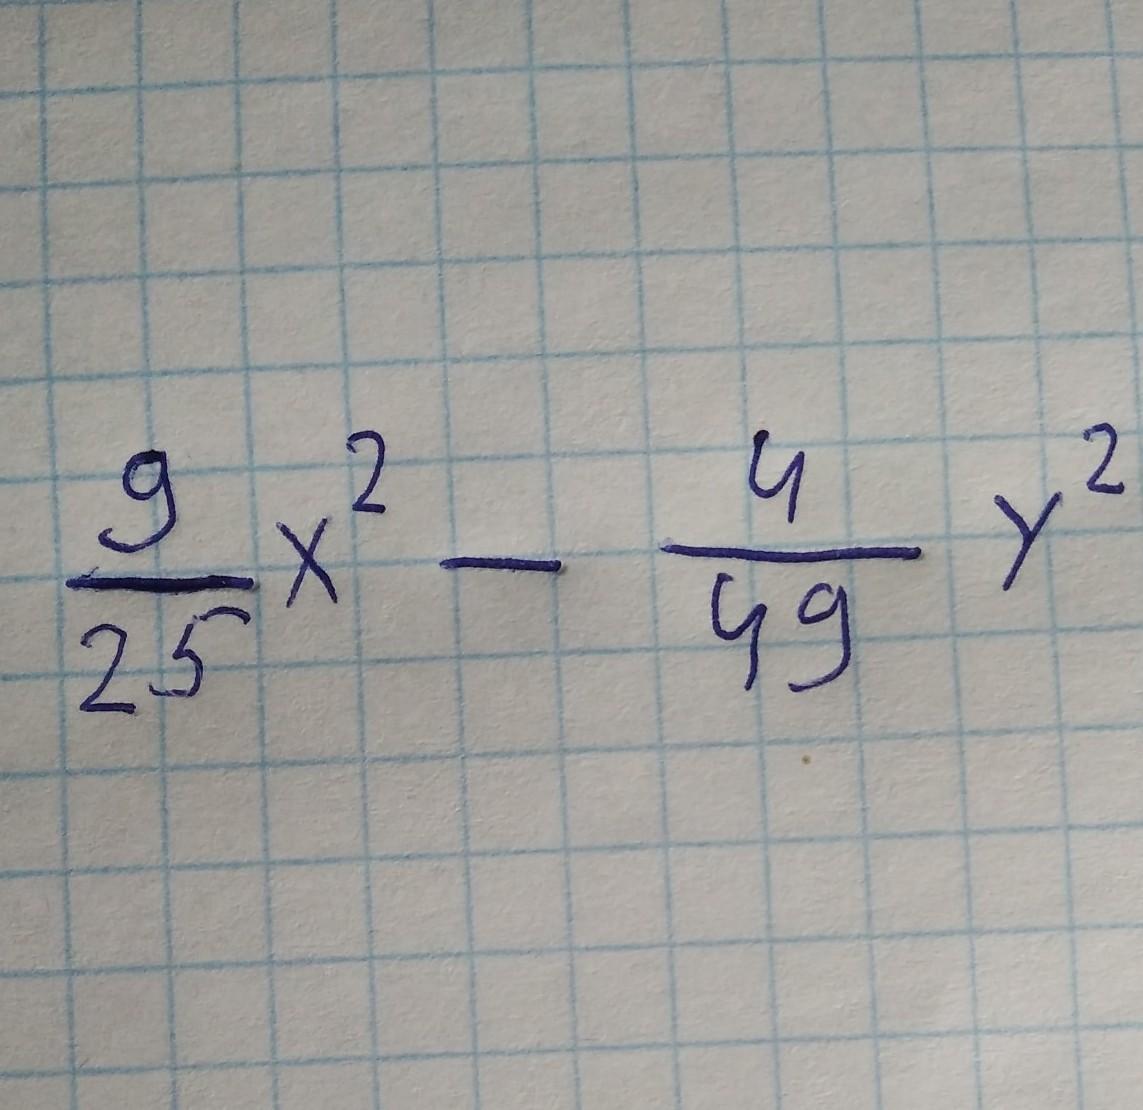 9/25 x² − 4/49 y²